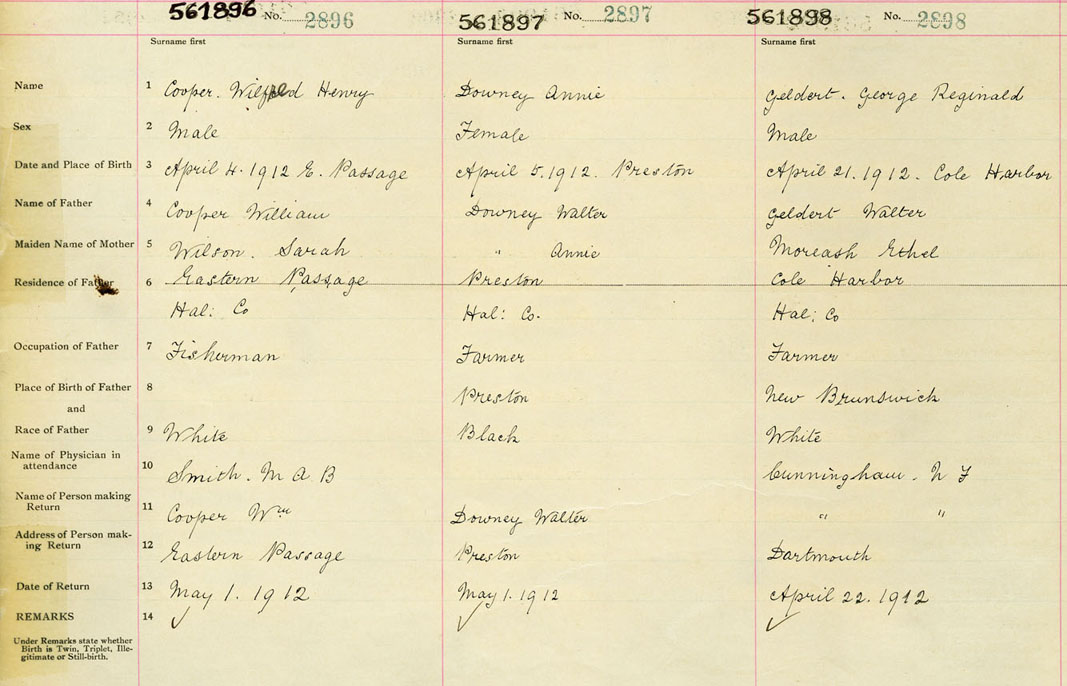 561896 No. 2896 561897 No. 2897 561898 No. 2898
Surname first Surname first Surname first
Name 1 Cooper. Wilfred Henry Downey Annie Geldert. George Reginald
Sex 2 Male Female Male
Date and Place of Birth 3 April 4. 1912 E. Passage April 5. 1912. Preston April 21. 1912. Cole Harbor
Name of Father 4 Cooper William Downey Walter Geldert Walter
Maiden Name of Mother 5 Wilson. Sarah " Annie Moreash Ethel
Residence of Father 6 Eastern Passage Preston Cole Harbor
Hal: Co Hal: Co. Hal: Co
Occupation of Father 7 Fisherman Farmer Farmer
Place of Birth of Father 8 Preston New Brunswick
and
Race of Father 9 White Black White
Name of Physician in
attendance 10 Smith. M A B Cunningham. N F
Name of Person making
Return 11 Cooper Wm Downey Walter " "
Address of Person mak-
ing Return 12 Eastern Passage Preston Dartmouth
Date of Return 13 May 1. 1912 May 1. 1912 April 22. 1912
REMARKS 14 ✓ ✓ ✓
Under Remarks state whether
Birth is Twin, Triplet, Ille-
gitimate or Still-birth.